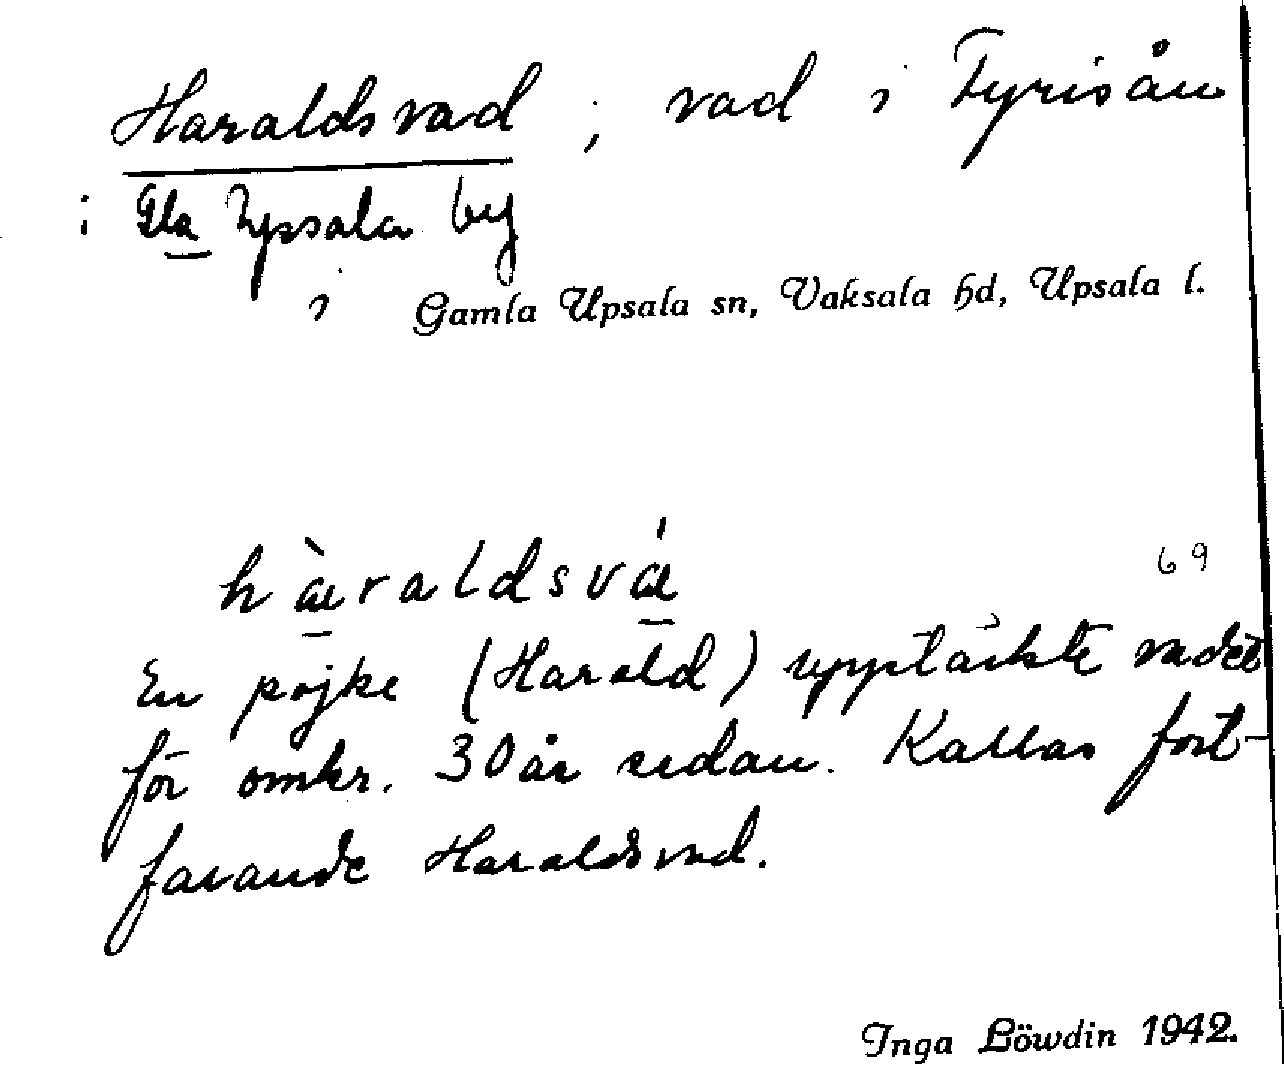 Haraldsvad ; vad i Fyrisån
i Gla Uppsala by
i Gamla Upsala sn, Vaksala hd, Upsala l.
hàraldsvá
69
En pojke (Harald) upptäckte vadet
för omkr. 30 år sedan. Kallas fort-
farande Haraldsvad.
Inga Löwdin 1942.